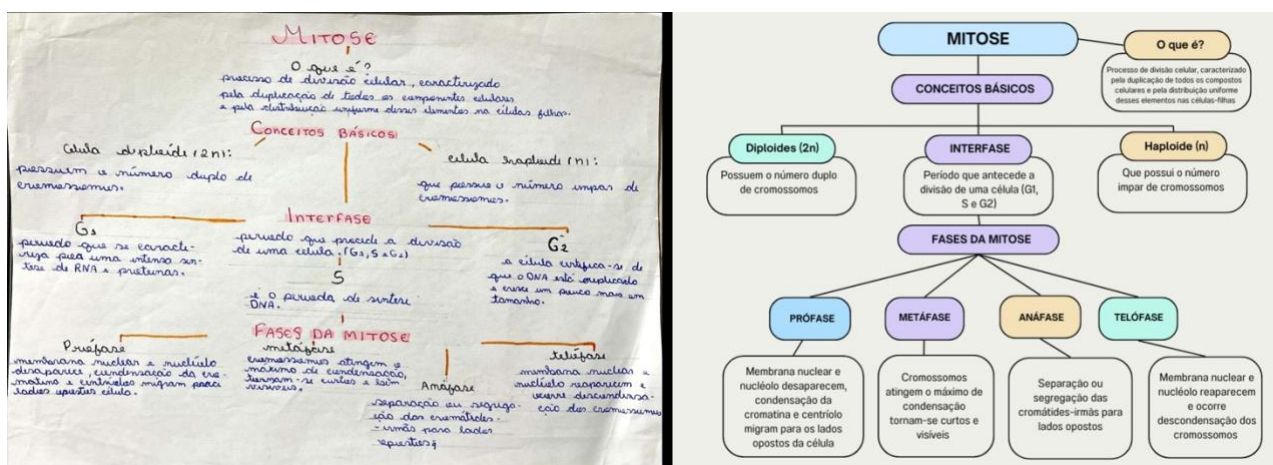 MITOSE
O que é?
processo de divisão celular, caracterizado
pela duplicação de todos os componentes celulares
e pela distribuição uniforme desses elementos na células filhas.
CONCEITOS BÁSICOS
Célula diploide (2n):
possuem o número duplo de
cromossomos.
célula haploide (n):
que possui o número impar de
cromossomos.
INTERFASE
período que precede a divisão
de uma célula. (G1, S e G2)
G1
período que se caracte-
riza pela uma intensa sín-
tese de RNA e proteínas.
S
é o período de síntese
DNA.
G2
a célula certifica-se de
que o DNA está replicado
e cresce um pouco mais em
tamanho.
FASES DA MITOSE
Prófase
membrana nuclear e nucléolo
desaparece, condensação da cro-
matina e centríolos migram para
lados opostos célula.
metáfase
cromossomos atingem o
máximo de condensação,
tornam-se curtos e
visíveis.
Anáfase
separação ou segrega-
ção das cromátides-
-irmãs para lados
opostos
telófase
membrana nuclear e
nucléolo reaparecem e
ocorre descondensa-
ção dos cromossomos
MITOSE
O que é?
Processo de divisão celular, caracterizado
pela duplicação de todos os compostos
celulares e pela distribuição uniforme
desses elementos nas células-filhas
CONCEITOS BÁSICOS
Diploides (2n)
Possuem o número duplo
de cromossomos
INTERFASE
Período que antecede a
divisão de uma célula (G1,
S e G2)
Haploide (n)
Que possui o número
impar de cromossomos
FASES DA MITOSE
PRÓFASE
Membrana nuclear e
nucléolo desaparecem,
condensação da
cromatina e centríolo
migram para os lados
opostos da célula
METÁFASE
Cromossomos
atingem o máximo de
condensação
tornam-se curtos e
visíveis
ANÁFASE
Separação ou
segregação das
cromátides-irmãs para
lados opostos
TELÓFASE
Membrana nuclear e
nucléolo reaparecem
e ocorre
descondensação dos
cromossomos